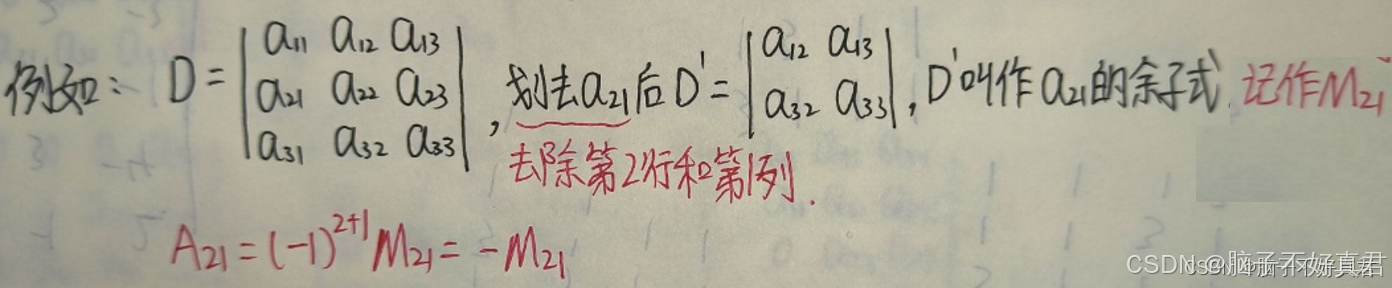 例如： D = | a₁₁ a₁₂ a₁₃ |
| a₂₁ a₂₂ a₂₃ |
| a₃₁ a₃₂ a₃₃ |
, 划去a₂₁后 D' = | a₁₂ a₁₃ |
| a₃₂ a₃₃ |
, D'叫作a₂₁的余子式. 记作M₂₁
去除第2行和第1列.
A₂₁ = (-1)²⁺¹ M₂₁ = -M₂₁
CSDN @脑子不好真君